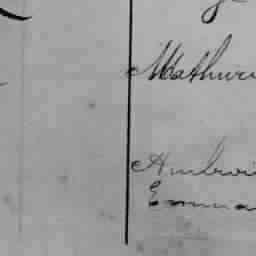 Mathuri
Ambroi
Emma